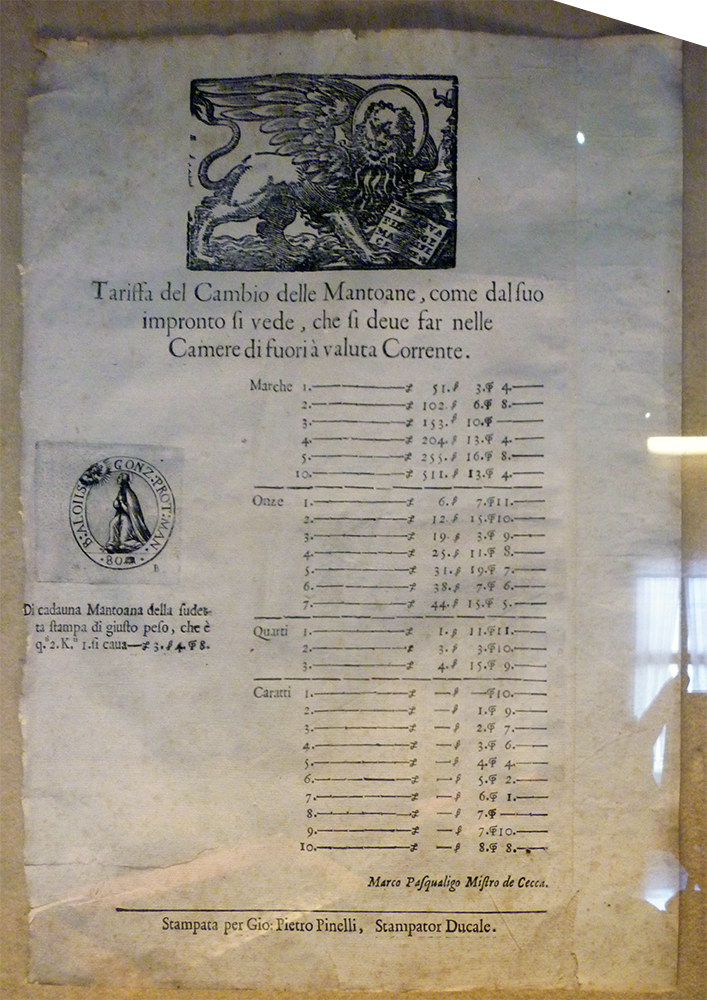 PA
Tariffa del Cambio delle Mantoane, come dal suo
impronto si vede, che si deue far nelle
Camere di fuori à valuta Corrente.
Marche 1. 51. 3. 4.
2. 102 6. 8.
3. 153. 10.
4. 204. 13. 4.
5. 255. 16. 8.
10. 511. 13. 4.
Onze 1. 6. 7. 11.
2. 12 15. 10.
3. 19. 3. 9.
4. 25. 11. 8.
5. 31. 19. 7.
6. 38. 7. 6.
7. 44. 15. 5.
Quarti 1. 1. 11. 11.
2. 3. 3. 10.
3. 4. 15. 9.
Caratti 1. — — 10.
2. — 1. 9.
3. — 2. 7.
4. — 3. 6.
5. — 4. 4.
6. — 5. 2.
7. — 6. 1.
8. — 7. —
9. — 7. 10.
10. — 8. 8.
B. ALOIIS GONZ. PROT. MAN
80
B
Di cadauna Mantoana della sudet-
ta stampa di giusto peso, che è
q. 2. K. 1. si caua 3. 4. 8.
Marco Pasqualigo Mistro de Cecca.
Stampata per Gio: Pietro Pinelli, Stampator Ducale.